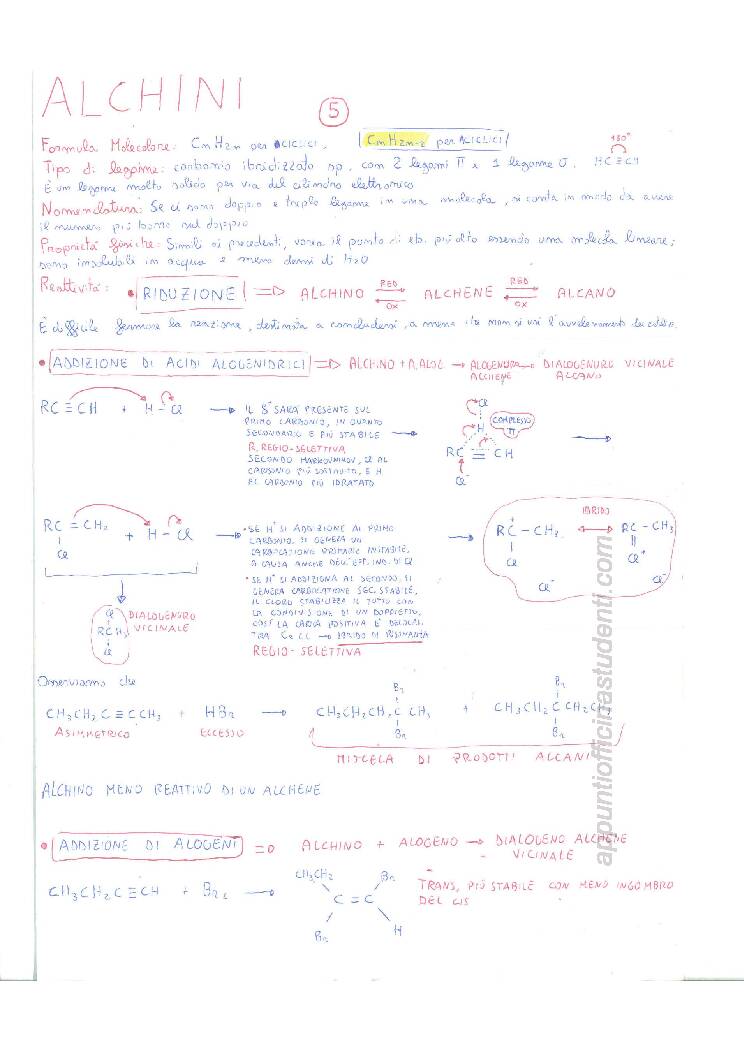 ALCHINI
5
Formula Molecolare: CnH2n per ACICLICI. CnH2n-2 per ACICLICI 180°
Tipo di legame: carbonio ibridizzato sp, con 2 legami π e 1 legame σ. HC≡CH
È un legame molto solido per via del cilindro elettronico
Nomenclatura: Se ci sono doppio e triplo legame in una molecola, si conta in modo da avere
il numero più basso sul doppio
Proprietà fisiche: Simili ai precedenti, varia il punto di eb. più alto essendo una molecola lineare;
sono insolubili in acqua e meno densi di H2O
Reattività: • RIDUZIONE => ALCHINO RED OX ALCHENE RED OX ALCANO
È difficile fermare la reazione, destinata a concludersi, a meno che non si usi l'avvelenamento del
• ADDIZIONE DI ACIDI ALOGENIDRICI => ALCHINO + → ALOGENURO → DIALOGENURO VICINALE
ALCHENE ALCANO
RC≡CH + H-Cl → IL SARÀ PRESENTE SUL
PRIMO CARBONIO, IN QUANTO
SECONDARIO E PIÙ STABILE →
R. REGIO-SELETTIVA
SECONDO MARKOVNIKOV, AL
CARBONIO PIÙ SOSTITUITO, E H
AL CARBONIO PIÙ IDRATATO
Cl
H
COMPLESSO
π
RC≡CH →
Cl⁻
RC=CH2 + H-Cl →
Cl
• SE H⁺ SI ADDIZIONE AL PRIMO
CARBONIO, SI GENERA UN
CARBOCATIONE PRIMARIO INSTABILE,
A CAUSA ANCHE DELL'EFF. IND. DI Cl
• SE H⁺ SI ADDIZIONA AL SECONDO, SI
GENERA CARBOCATIONE SEC. STABILE,
IL CLORO STABILIZZA IL TUTTO CON
LA CONDIVISIONE DI UN DOPPIETTO,
COSÌ LA CARICA POSITIVA È DELOCAL.
TRA C e Cl → IBRIDO DI RISONANZA
REGIO-SELETTIVA
→
IBRIDO
RC⁺-CH3 ↔ RC-CH3
Cl Cl⁺
Cl⁻ Cl⁻
Cl
RCCH3
Cl
DIALOGENURO
VICINALE
Osserviamo che
CH3CH2C≡CCH3 + HBr → CH3CH2CH2CCH3 + CH3CH2CCH2CH3
Br Br
Br Br
ASIMMETRICO ECCESSO
MISCELA DI PRODOTTI ALCANI
ALCHINO MENO REATTIVO DI UN ALCHENE
• ADDIZIONE DI ALOGENI => ALCHINO + ALOGENO → DIALOGENO ALCHENE
VICINALE
CH3CH2C≡CH + Br2 →
CH3CH2 Br
C=C
Br H
TRANS, PIÙ STABILE CON MENO INGOMBRO
DEL CIS
appuntiofficinastudenti.com